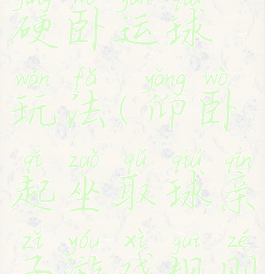 yìng wò yùn qiú
硬卧运球
wán fǎ yǎng wò
玩法(仰卧
qǐ zuò qǔ qiú qīn
起坐取球亲
zǐ yóu xì guī zé
子游戏规则